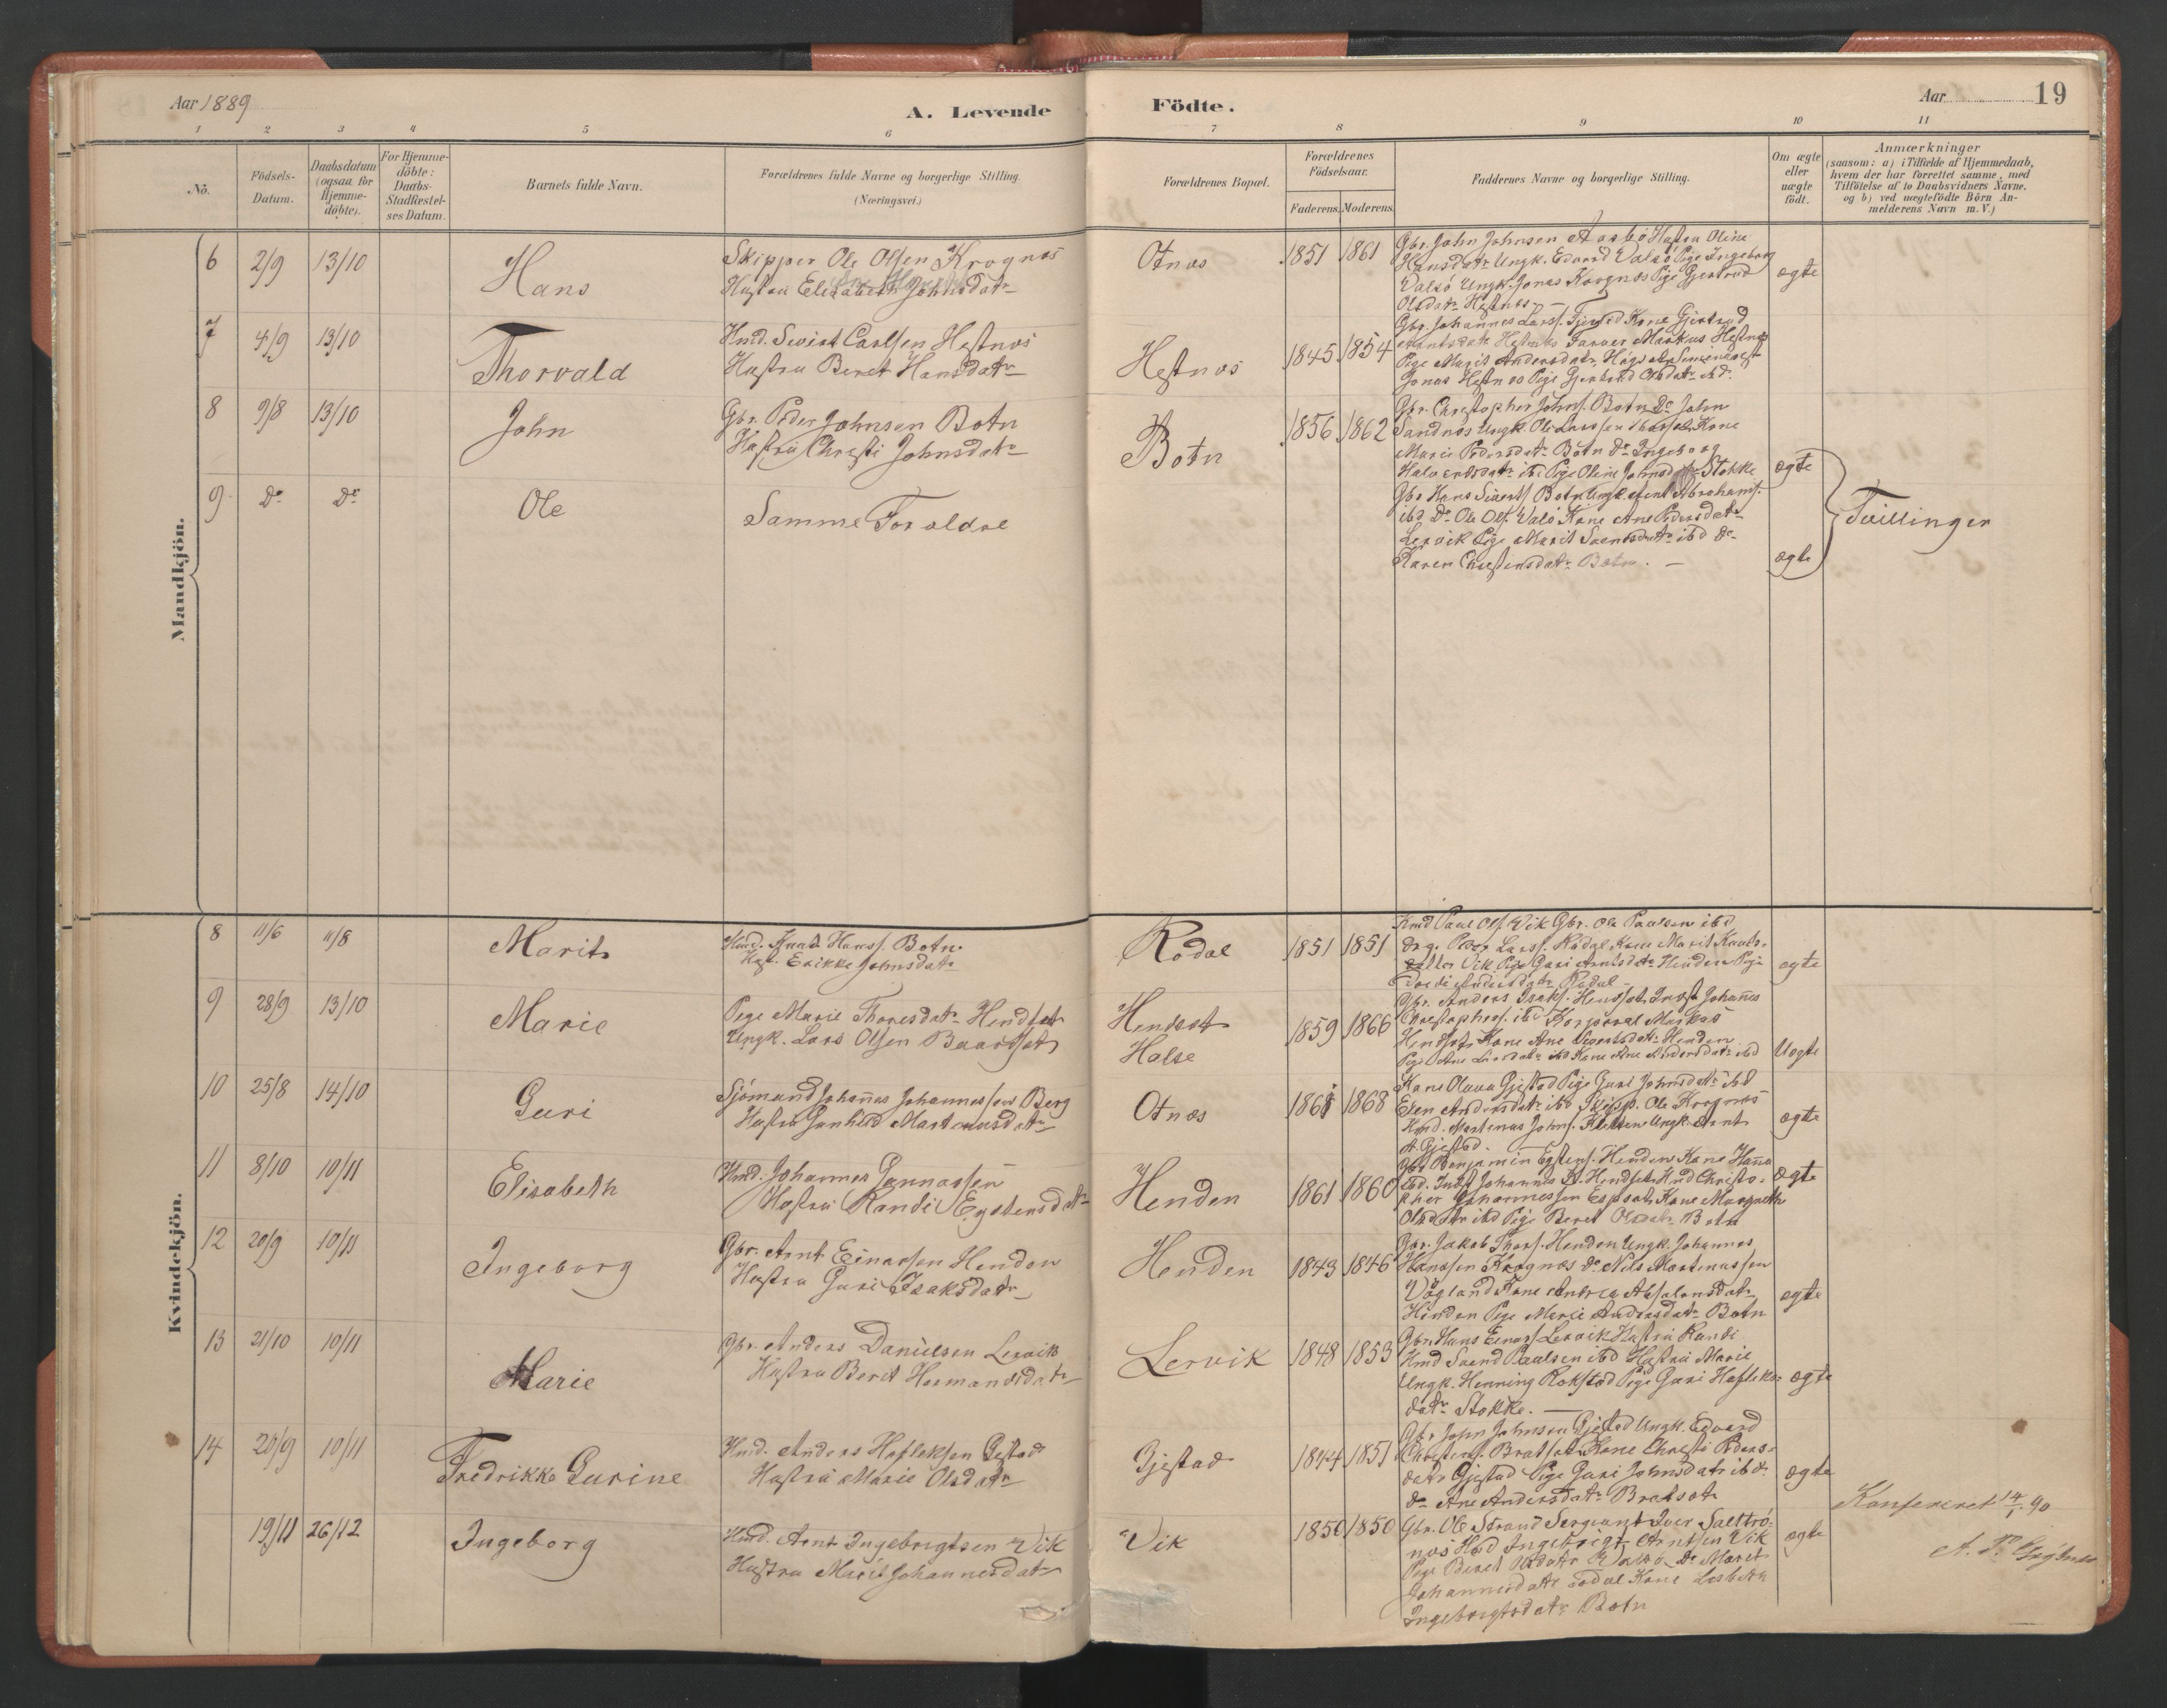 Aar 1889
A. Levende Födte.
Aar 19
1 2 3 4 5 6 7 8 9 10 11
No.
Födsels-Datum.
Daabsdatum (ogsaa for Hjemme-döbte).
For Hjemme-döbte: Daabs-Stadfæstel-ses Datum.
Barnets fulde Navn.
Forældrenes fulde Navne og borgerlige Stilling.
(Næringsvei.)
Forældrenes Bopæl.
Forældrenes Födselsaar.
Faderens. Moderens.
Faddernes Navne og borgerlige Stilling.
Om ægte eller uægte födt.
Anmærkninger
(saasom: a) i Tilfælde af Hjemmedaab, hvem der har forrettet samme, med Tilföielse af to Daabsvidners Navne. og b) ved uægtefödte Börn An-melderens Navn m. V.)
Mandkjön.
6 2/9 13/10 Hans
Skipper Ole Olsen Krognæs
Hustru Elisabeth Johnsdatr
Otnæs 1851 1861
Gbr. John Johnsen Aasbö Hustru Oline
Hansdatr Ungk. Edvard Valsö Pige Ingeborg
Valsö Ungk. Jonas Krognæs Pige Gjertrud
Olsdatr Hestnes
ægte
7 4/9 13/10 Thorvald
Hmd. Sivert Carlsen Hestnæs
Hustru Beret Hansdatr
Hestnæs 1845 1854
Gbr. Johannes Larss. Kone Gjertrud
Hestnæs Farver Markus Hestnæs
Pige Marit Andersdatr
Jonas Hestnæs Pige Gjertrud Olsdatr ibd.
8 9/8 13/10 John
Gbr. Peder Johnsen Botn
Hustru Christi Johnsdatr
Botn 1856 1862
Gbr. Christopher Johns. Botn Do John
Sandnæs Ungk. Ole Larssen Kone
Marie Pedersdatr Botn Do Ingeborg
Halvorsdatr ibd Pige Oline Johnsdatr Stokke
ægte
9 Do Do Ole
Samme Foræ​ldre
Gbr Hans Siverts. Botn Ungk. Arnt Abrahams.
ibd Do Ole Ols. Valsö Kone Ane Pedersdatr
Lervik Pige Marit Svendsdatr ibd Do
Karen Christensdatr Botn.
ægte
Tvillinger
Kvindekjön.
8 11/6 11/8 Marit
Hmd. Knut Hanss. Botn.
Hust. Erikke Johnsdatr
Rodal 1851 1851
Hmd Paul Ols. Vik Gbr. Ole Paalsen ibd
Drg. Peder Larss. Rodal Kone Marit Knuts-
datter Vik Pige Guri Arntsdatr Henden Pige
Andersdatr Rodal
ægte
9 28/9 13/10 Marie
Pige Marie Thoresdatr Hendset
Ungk. Lars Olsen Baardset
Hendset
Halse
1859 1866
Gbr. Anders Isaks. Hendset Indst Johannes
Christophers. ibd Korporal Markus
Hendset Kone Ane Sivertsdatr Henden
Pige Ane Larsdatr ibd Kone Ane Andersdatr ibd
Uægte
10 25/8 14/10 Guri
Sjömand Johannes Johannessen Berg
Hustru Gunhild Martinusdatr
Otnæs 1868
Kone Olava Gjestad Pige Guri Johnsdatr ibd
Elen Andersdatr ibd Skipp. Ole Krognæs
Hmd. Martinus Johns. Ungk. Arnt
A. Gjestad.
ægte
11 8/10 10/11 Elisabeth
Hmd. Johannes Gunnarssen
Hustru Randi Eystensdatr
Henden 1861 1860
Gbr Benjamin Eystens. Henden Kone Hanna
ibd. Indst Johannes K. Hendset Hmd Christo-
pher Johannessen Espset Kone Margreth
Olsdatr ibd Pige Beret Olsdatr Botn
ægte
12 20/9 10/11 Ingeborg
Gbr. Arnt Einarsen Henden
Hustru Guri Isaksdatr
Henden 1843 1846
Gbr. Jakob Thors. Henden Ungk. Johannes
Hanssen Krognæs Do Nils Martinussen
Vågland Kone Andrea Absalonsdatr
Henden Pige Marie Andersdatr Botn
ægte
13 21/10 10/11 Marie
Gbr. Anders Danielsen Lervik
Hustru Beret Hermandsdatr
Lervik 1848 1853
Gbr. Hans Einars. Lervik Hustru Randi
Hmd Svend Paulsen ibd Hustru Marie
Ungk. Henning Rokstad Pige Guri Hafteks-
datr Stokke.
ægte
14 20/9 10/11 Fredrikke Gurine
Hmd. Anders Hafteksen Gjestad
Hustru Marie Olsdatr
Gjestad 1844 1851
Gbr John Johnsen Gjestad Ungk. Edvard
Christens. Bratset Kone Christi Peders-
datr Gjestad Pige Guri Johnsdatr ibd
Do Ane Andersdatr Bratset
ægte
19/11 26/12 Ingeborg
Hmd. Arnt Ingebrigtsen Vik
Hustru Marit Johannesdatr
Vik 1850 1850
Gbr. Ole Strand Sergeant Iver Saltrö-
næs Hmd Ingebrigt Arntsen Vik
Pige Beret Olsdatr Valsö Do Maret
Johannesdatr Rodal Kone Lisbeth
Ingebrigtsdatr Botn
ægte
Konfereret 14/1 90